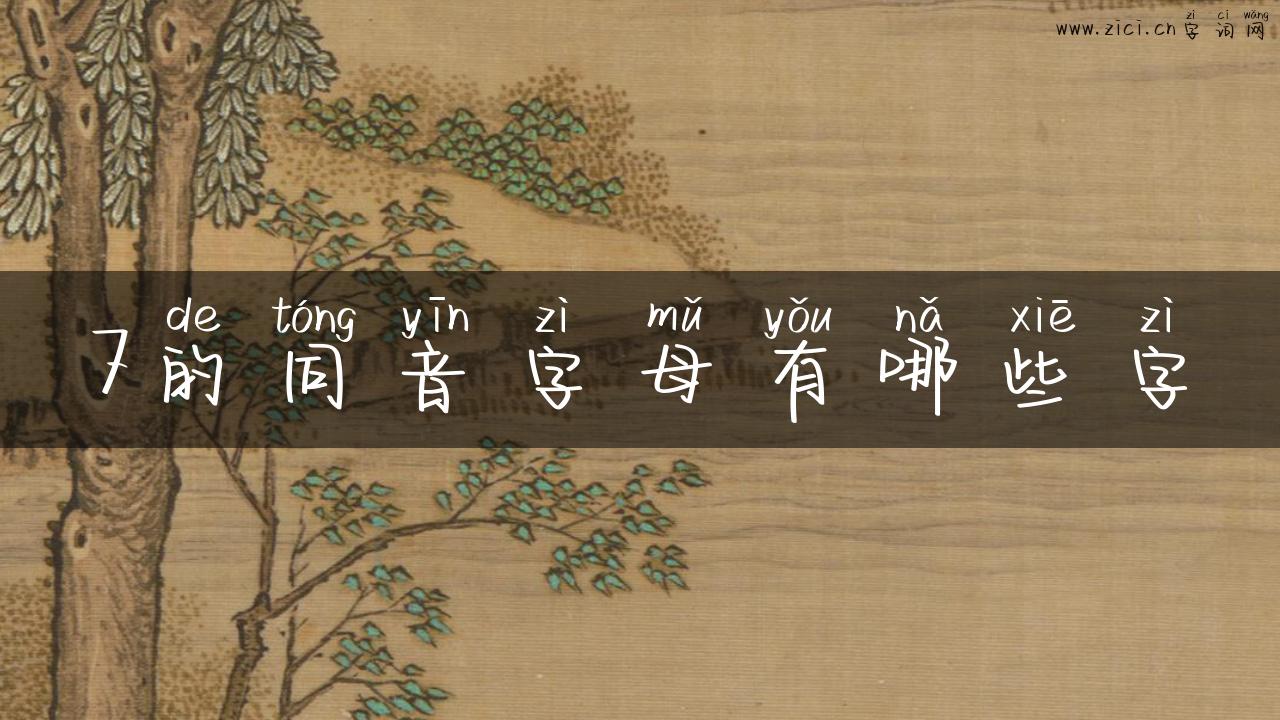 zì cí wǎng
www.zici.cn字词网
de tóng yīn zì mǔ yǒu nǎ xiē zì
7的同音字母有哪些字